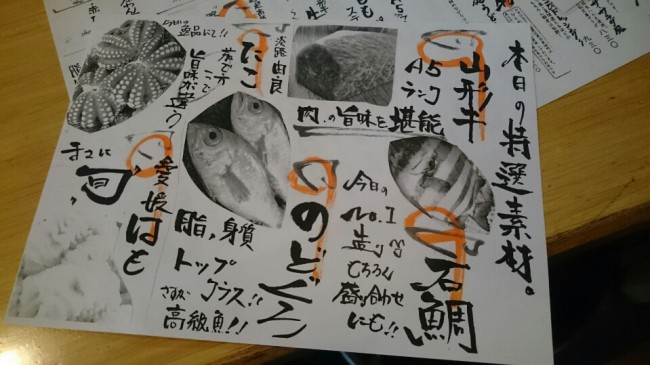 本日の特選素材。
山形牛
A5
ランク
肉の旨味を堪能
石鯛
今日の
No.1
造り
もちろん
盛り合わせ
にも!!
のどぐろ
脂,身質
トップ
クラス!!
さすが
高級魚!!
淡路由良
たこ
茹でた
ここで
旨味が違う
逸品にて!!
愛媛はも
まさに
旬